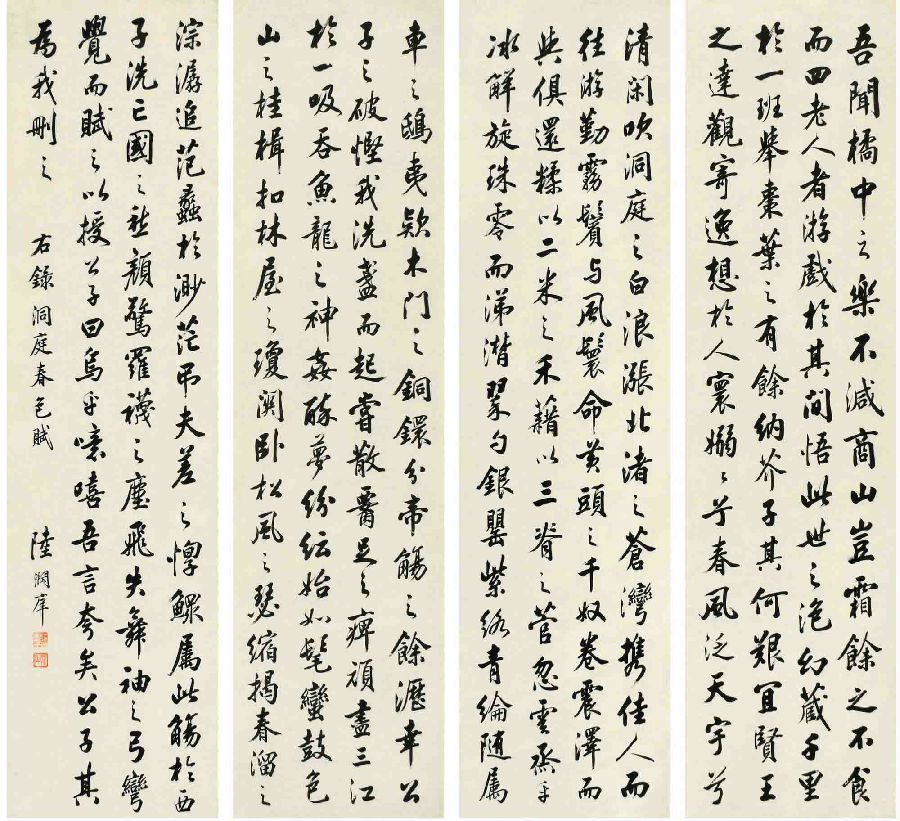 吾聞橘中之樂不減商山豈霜餘之不食
而四老人者游戲於其間悟此世之泡幻藏千里
於一班舉棗葉之有餘納芥子其何艱宜賢王
之達觀寄逸想於人寰嫋〻兮春風泛天宇兮
清閑吹洞庭之白浪漲北渚之蒼灣攜佳人而
往游勤霧鬢与風鬟命黃頭之千奴卷震澤而
與俱還糅以二米之禾藉以三脊之菅忽雲烝乎
冰解旋珠零而涕潸翠勺銀罌紫絡青綸隨屬
車之鴟夷款木門之銅鐶分帝觴之餘瀝幸公
子之破慳我洗盞而起嘗散足之痺頑盡三江
於一吸吞魚龍之神姦醉夢紛紜始如髦蠻鼓包
山之桂楫扣林屋之瓊關臥松風之瑟縮揭春溜之
淙潺追范蠡於渺茫弔夫差之惸鰥屬此觴於西
子洗亡國之愁顏驚羅襪之塵飛失舞袖之弓彎
覺而賦之以授公子曰烏乎噫嘻吾言夸矣公子其
為我刪之 右錄洞庭春色賦 陸潤庠